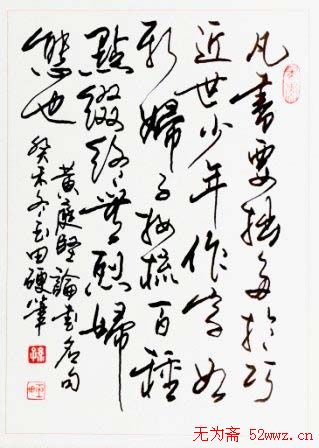 凡書要拙多於巧
近世少年作字如
新婦子妝梳百種
點綴終無烈婦
態也
黃庭堅論書名句
癸未冬玉田硬筆
无为斋 52wwz.cn